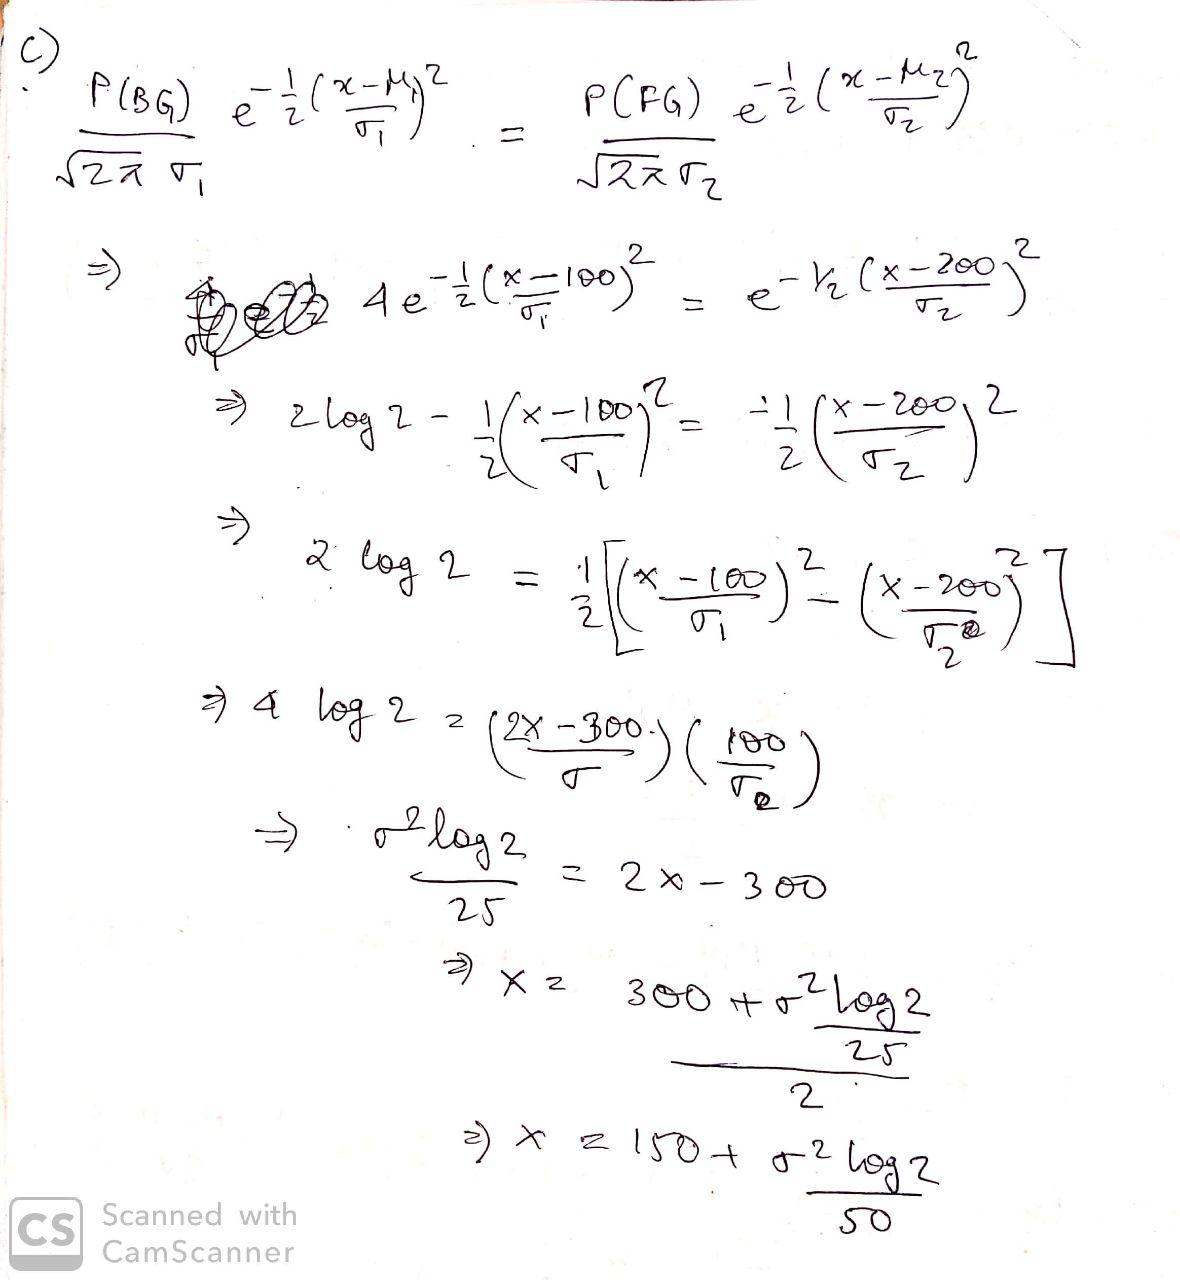 c)
P(BG)/(√2π σ₁) e^(-1/2 ((x-μ₁)/σ₁)²) = P(FG)/(√2π σ₂) e^(-1/2 ((x-μ₂)/σ₂)²)
⇒ 4 e^(-1/2 ((x-100)/σ₁)²) = e^(-1/2 ((x-200)/σ₂)²)
⇒ 2 log 2 - 1/2 ((x-100)/σ₁)² = -1/2 ((x-200)/σ₂)²
⇒ 2 log 2 = 1/2 [((x-100)/σ₁)² - ((x-200)/σ₂)²]
⇒ 4 log 2 = ((2x-300)/σ) (100/σ)
⇒ σ² log 2 / 25 = 2x - 300
⇒ x = (300 + σ² log 2 / 25) / 2
⇒ x = 150 + σ² log 2 / 50
CS Scanned with
CamScanner